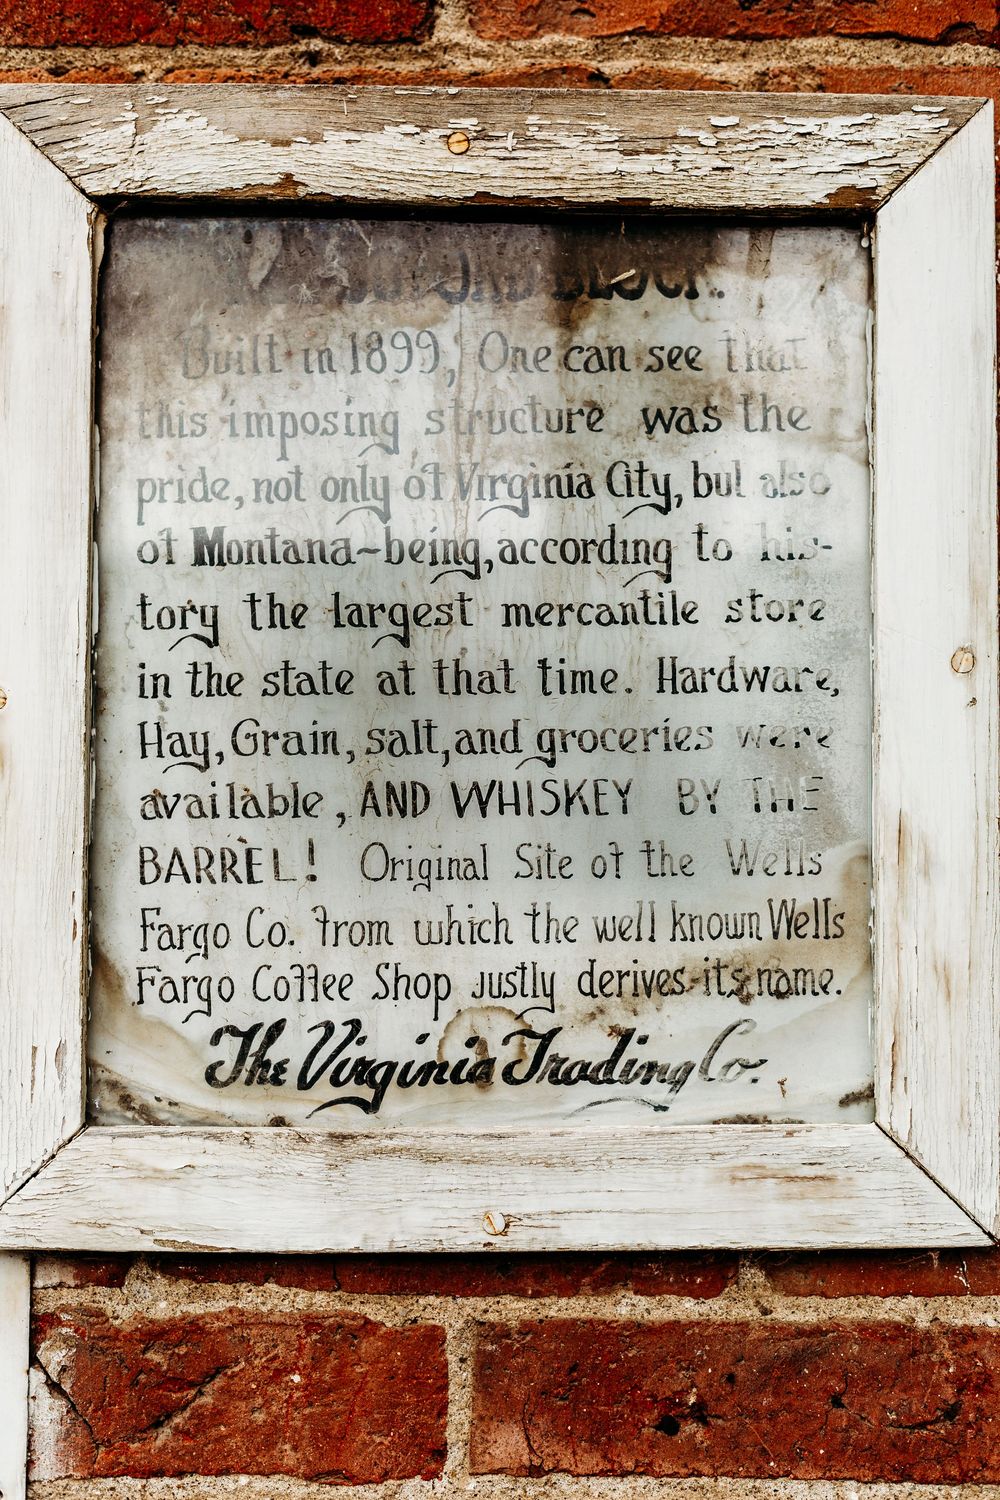 BLOCK.
Built in 1899, One can see that
this imposing structure was the
pride, not only of Virginia City, but also
of Montana~being, according to his-
tory the largest mercantile store
in the state at that time. Hardware,
Hay, Grain, salt, and groceries were
available, AND WHISKEY BY THE
BARREL! Original Site of the Wells
Fargo Co. from which the well known Wells
Fargo Coffee Shop justly derives its name.
The Virginia Trading Co.